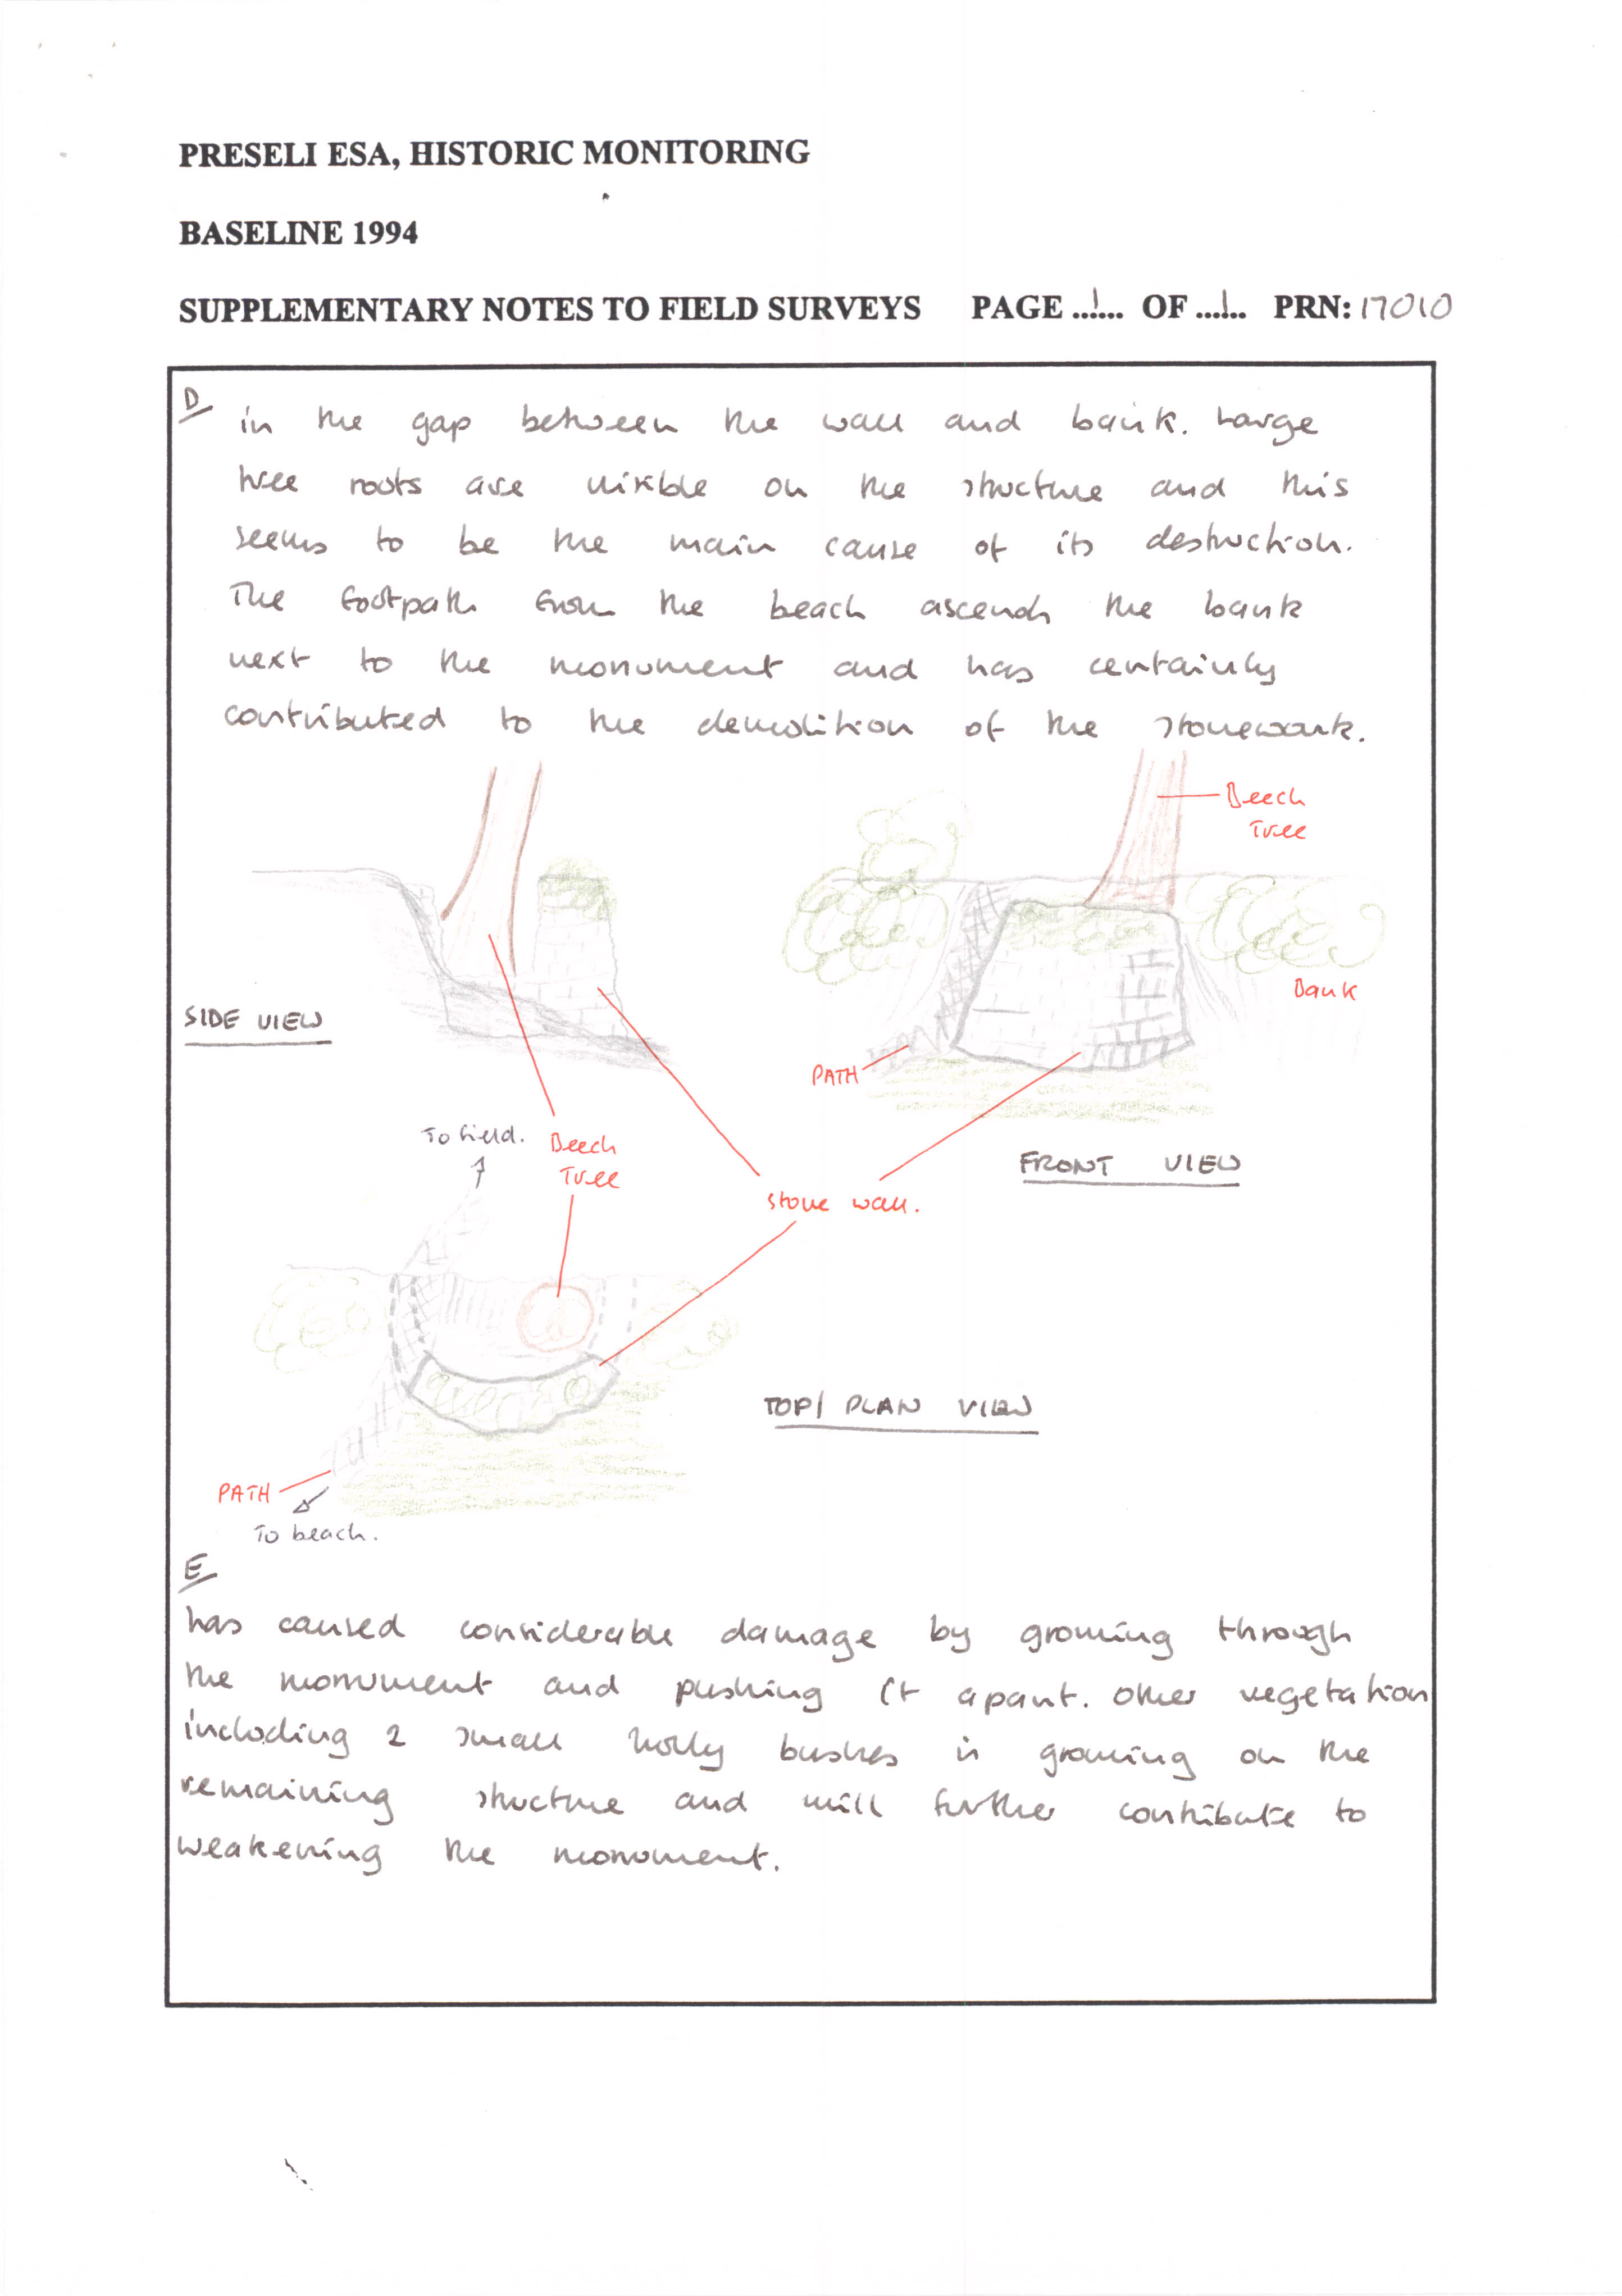 PRESELI ESA, HISTORIC MONITORING
BASELINE 1994
SUPPLEMENTARY NOTES TO FIELD SURVEYS PAGE ..1... OF ...1.. PRN: 17010
D
in the gap between the wall and bank. Large
tree roots are visible on the structure and this
seems to be the main cause of its destruction.
The footpath from the beach ascends the bank
next to the monument and has certainly
contributed to the demolition of the stonework.
Beech
Tree
Bank
SIDE VIEW
PATH
To field.
Beech
Tree
FRONT VIEW
Stone wall.
TOP/ PLAN VIEW
PATH
To beach.
E
has caused considerable damage by growing through
the monument and pushing it apart. Other vegetation
including 2 small holly bushes is growing on the
remaining structure and will further contribute to
weakening the monument.